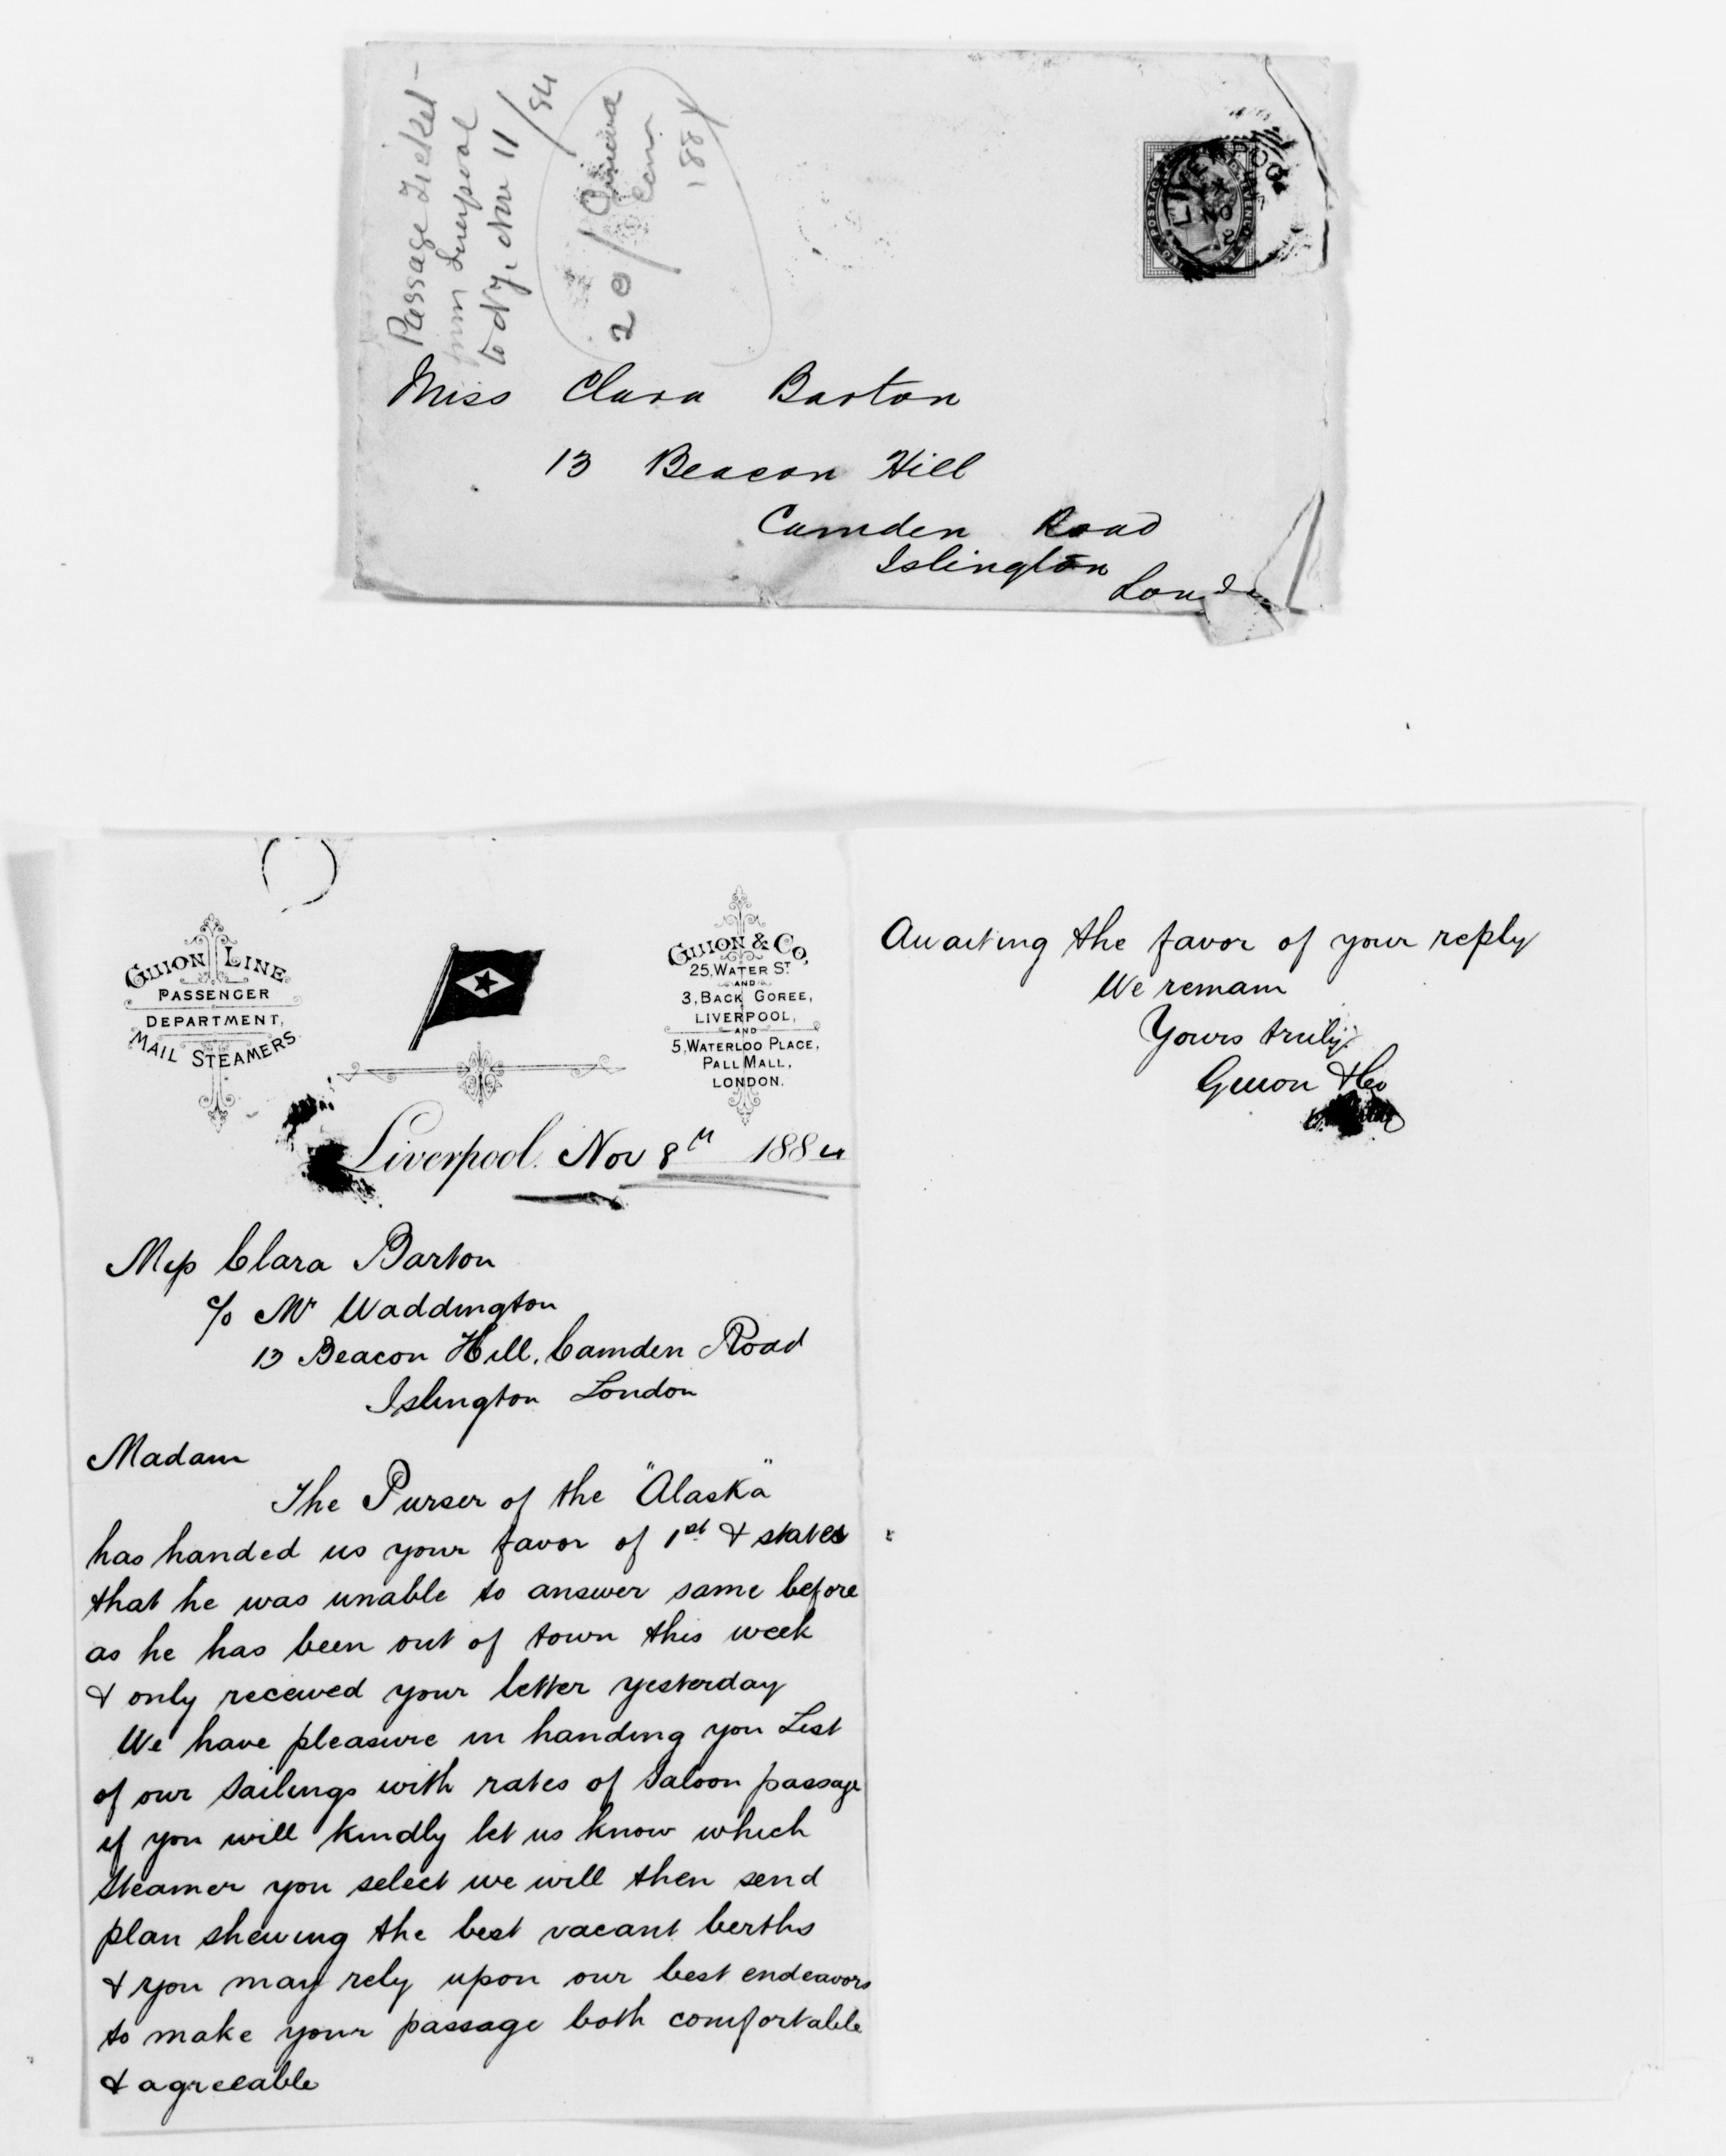 Passage Ticket -
from Liverpool
to N.Y. Nov 11/84
20/Geneva
Conv
1884
LIVERPOOL
NO
8
Miss Clara Barton
13 Beacon Hill
Camden Road
Islington
London
GUION LINE
PASSENGER
DEPARTMENT,
MAIL STEAMERS
GUION & Co,
25, WATER ST.
AND
3, BACK GOREE,
LIVERPOOL,
AND
5, WATERLOO PLACE,
PALL MALL,
LONDON.
Liverpool. Nov 8th 1884
Miss Clara Barton
c/o Mr Waddington
13 Beacon Hill, Camden Road
Islington London
Madam
The Purser of the "Alaska"
has handed us your favor of 1st & states
that he was unable to answer same before
as he has been out of town this week
& only received your letter yesterday
We have pleasure in handing you List
of our sailings with rates of saloon passage
if you will kindly let us know which
steamer you select we will then send
plan shewing the best vacant berths
& you may rely upon our best endeavors
to make your passage both comfortable
& agreeable
Awaiting the favor of your reply
We remain
Yours truly
Guion & Co